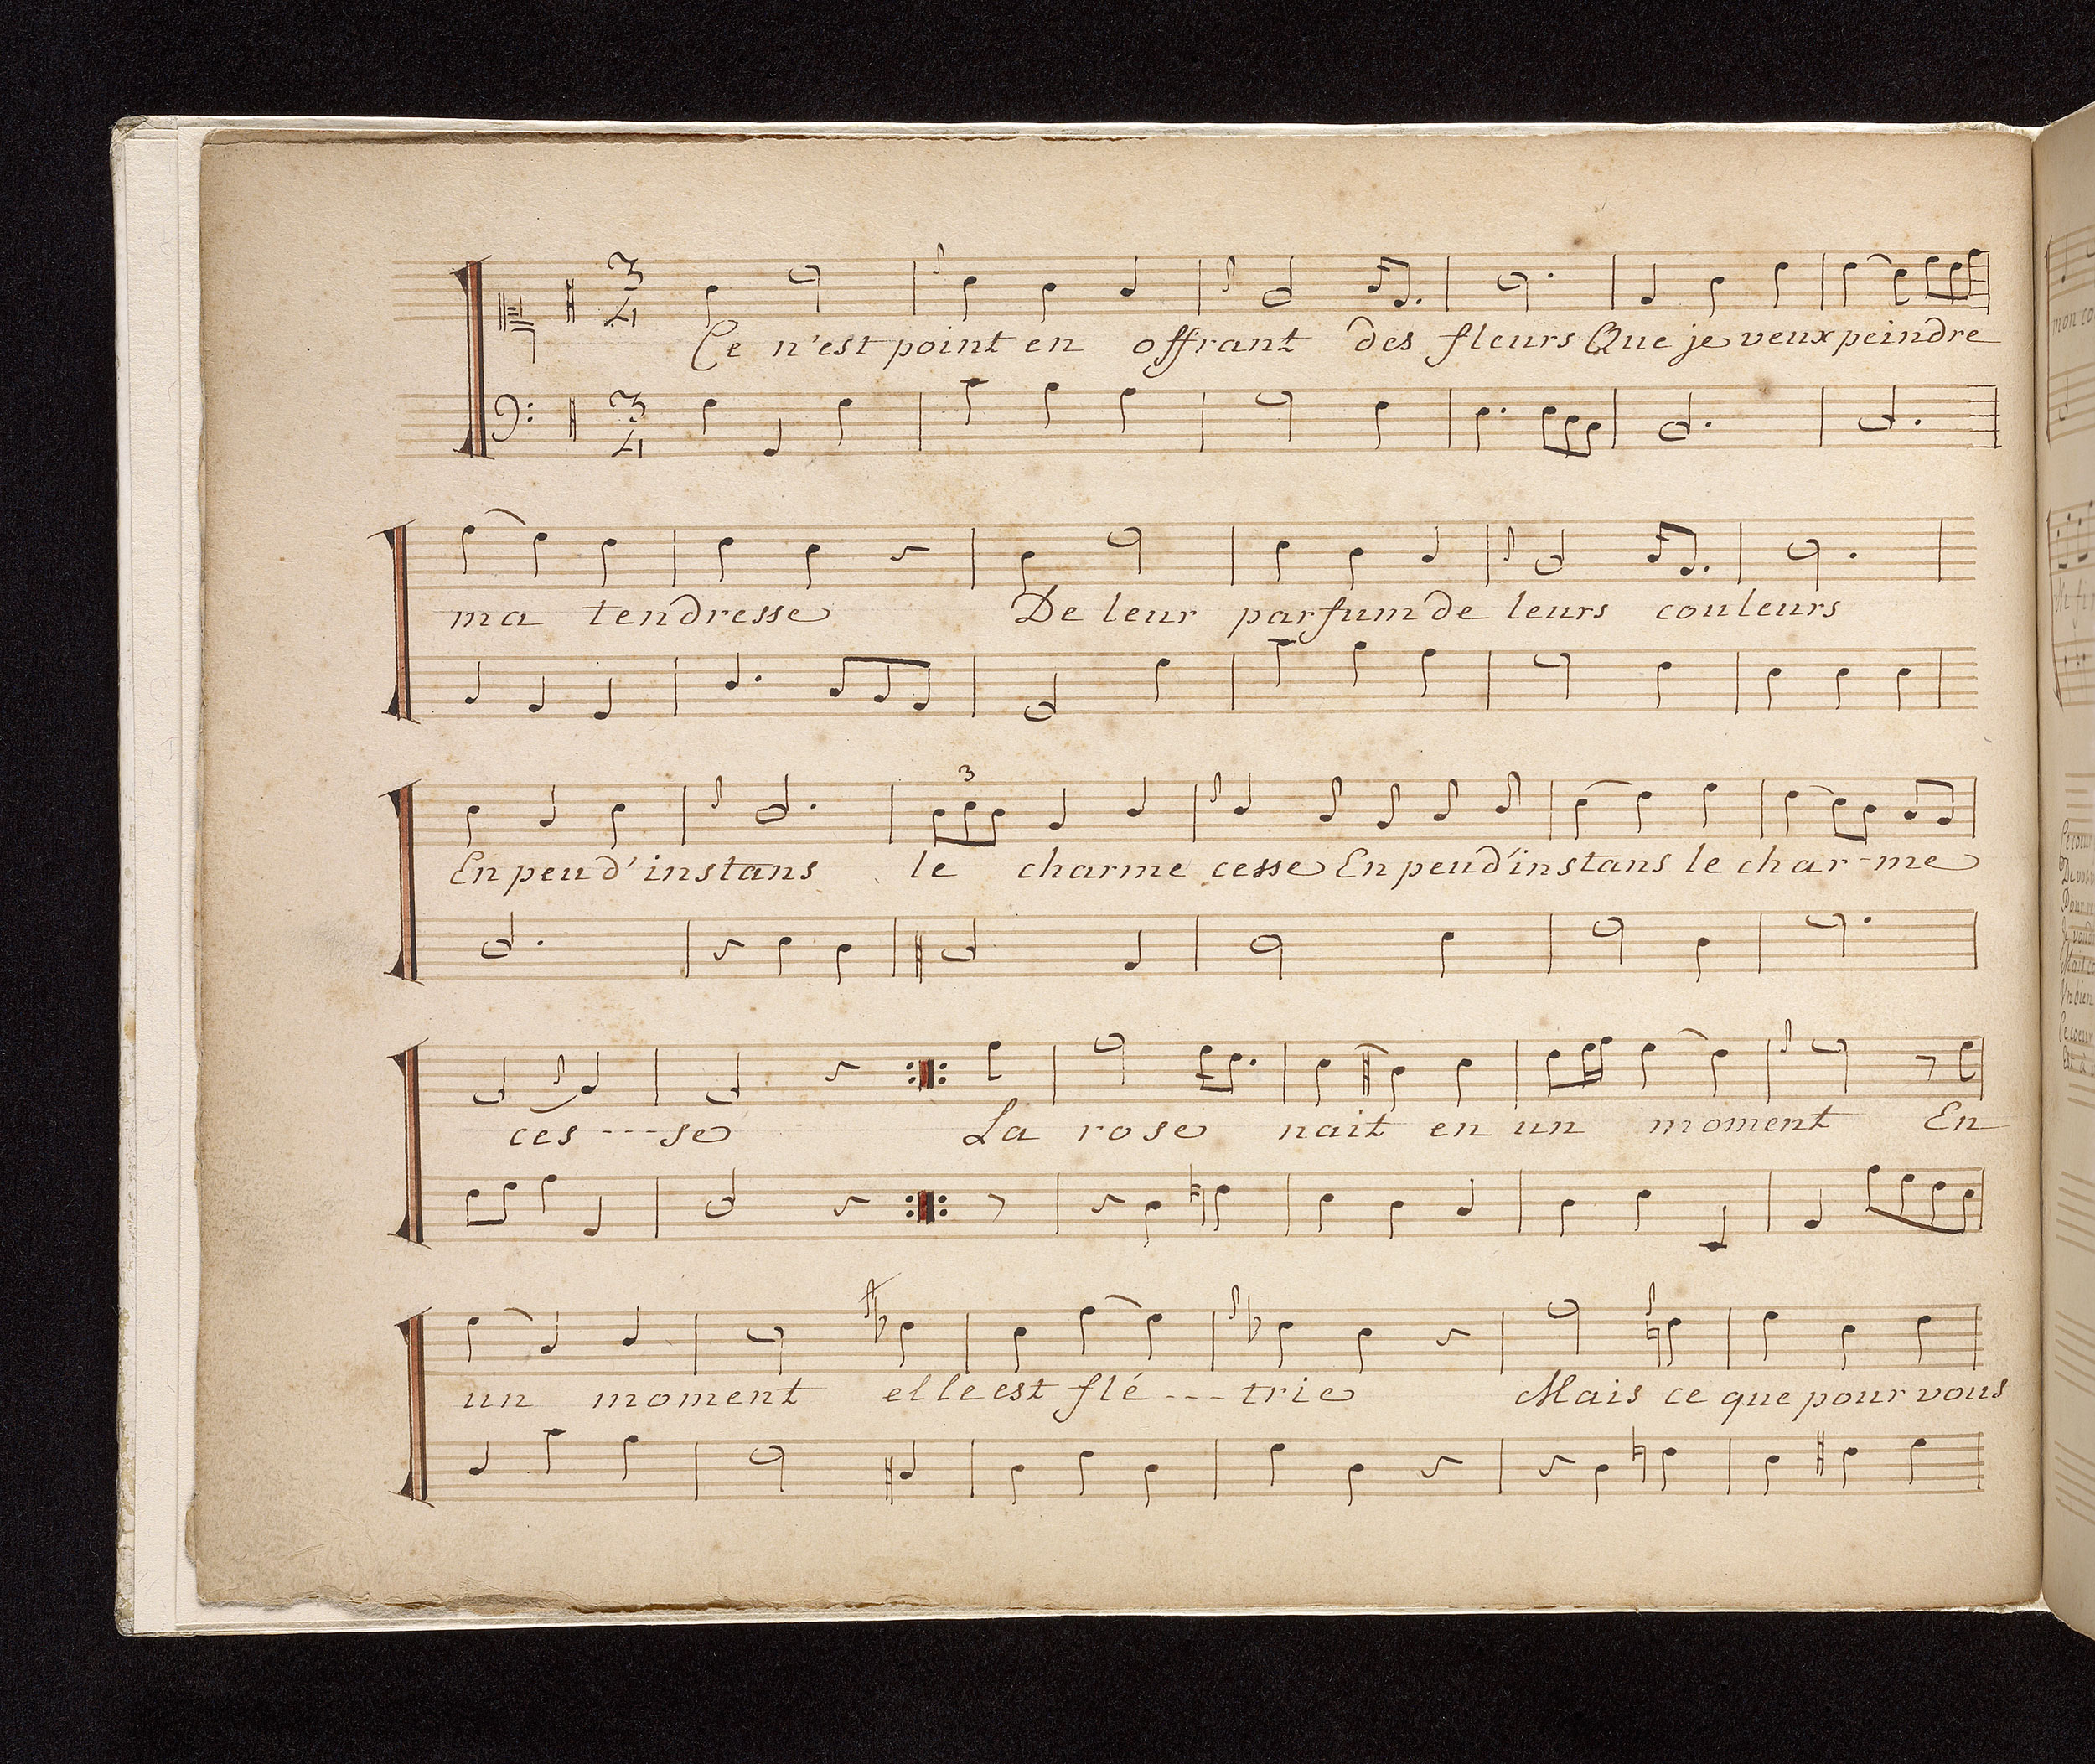 3 4
Ce n'est point en offrant des fleurs Que je veux peindre
3 4
ma tendresse De leur parfum de leurs couleurs
3
En peu d'instans le charme cesse En peu d'instans le char-me
ces---se La rose nait en un moment En
un moment elle est flé---trie Mais ce que pour vous
mon co